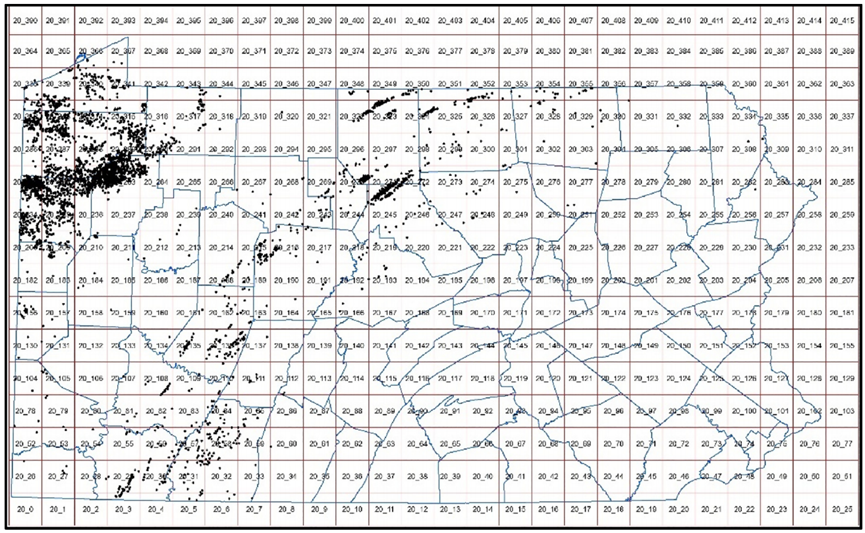 20_390 20_391 20_392 20_393 20_394 20_395 20_396 20_397 20_398 20_399 20_400 20_401 20_402 20_403 20_404 20_405 20_406 20_407 20_408 20_409 20_410 20_411 20_412 20_413 20_414 20_415
20_364 20_365 20_367 20_368 20_369 20_370 20_371 20_372 20_373 20_374 20_375 20_376 20_377 20_378 20_379 20_380 20_381 20_382 20_383 20_384 20_385 20_386 20_387 20_388 20_389
20_342 20_343 20_344 20_345 20_346 20_347 20_348 20_349 20_350 20_351 20_352 20_353 20_354 20_355 20_356 20_357 20_358 20_359 20_360 20_361 20_362 20_363
20_316 20_317 20_318 20_319 20_320 20_321 20_324 20_325 20_326 20_327 20_328 20_329 20_330 20_331 20_332 20_333 20_334 20_335 20_336 20_337
20_291 20_292 20_293 20_294 20_295 20_296 20_297 20_298 20_299 20_300 20_301 20_302 20_303 20_304 20_305 20_306 20_307 20_308 20_309 20_310 20_311
20_264 20_265 20_266 20_267 20_268 20_269 20_272 20_273 20_274 20_275 20_276 20_277 20_278 20_279 20_280 20_281 20_282 20_283 20_284 20_285
20_237 20_238 20_239 20_240 20_241 20_242 20_244 20_245 20_246 20_247 20_248 20_249 20_250 20_251 20_252 20_253 20_254 20_255 20_256 20_257 20_258 20_259
20_210 20_211 20_212 20_213 20_214 20_215 20_217 20_218 20_219 20_220 20_221 20_222 20_223 20_224 20_225 20_226 20_227 20_228 20_229 20_230 20_231 20_232 20_233
20_182 20_183 20_184 20_185 20_186 20_187 20_188 20_189 20_190 20_191 20_192 20_193 20_194 20_195 20_196 20_197 20_198 20_199 20_200 20_201 20_202 20_203 20_204 20_205 20_206 20_207
20_156 20_157 20_158 20_159 20_160 20_161 20_162 20_163 20_164 20_165 20_166 20_167 20_168 20_169 20_170 20_171 20_172 20_173 20_174 20_175 20_176 20_177 20_178 20_179 20_180 20_181
20_130 20_131 20_132 20_133 20_134 20_135 20_136 20_137 20_138 20_139 20_140 20_141 20_142 20_143 20_144 20_145 20_146 20_147 20_148 20_149 20_150 20_151 20_152 20_153 20_154 20_155
20_104 20_105 20_106 20_107 20_108 20_109 20_110 20_111 20_112 20_113 20_114 20_115 20_116 20_117 20_118 20_119 20_120 20_121 20_122 20_123 20_124 20_125 20_126 20_127 20_128 20_129
20_78 20_79 20_80 20_81 20_82 20_83 20_84 20_85 20_86 20_87 20_88 20_89 20_90 20_91 20_92 20_93 20_94 20_95 20_96 20_97 20_98 20_99 20_100 20_101 20_102 20_103
20_52 20_53 20_54 20_55 20_56 20_57 20_58 20_59 20_60 20_61 20_62 20_63 20_64 20_65 20_66 20_67 20_68 20_69 20_70 20_71 20_72 20_73 20_74 20_75 20_76 20_77
20_26 20_27 20_28 20_29 20_30 20_31 20_32 20_33 20_34 20_35 20_36 20_37 20_38 20_39 20_40 20_41 20_42 20_43 20_44 20_45 20_46 20_47 20_48 20_49 20_50 20_51
20_0 20_1 20_2 20_3 20_4 20_5 20_6 20_7 20_8 20_9 20_10 20_11 20_12 20_13 20_14 20_15 20_16 20_17 20_18 20_19 20_20 20_21 20_22 20_23 20_24 20_25